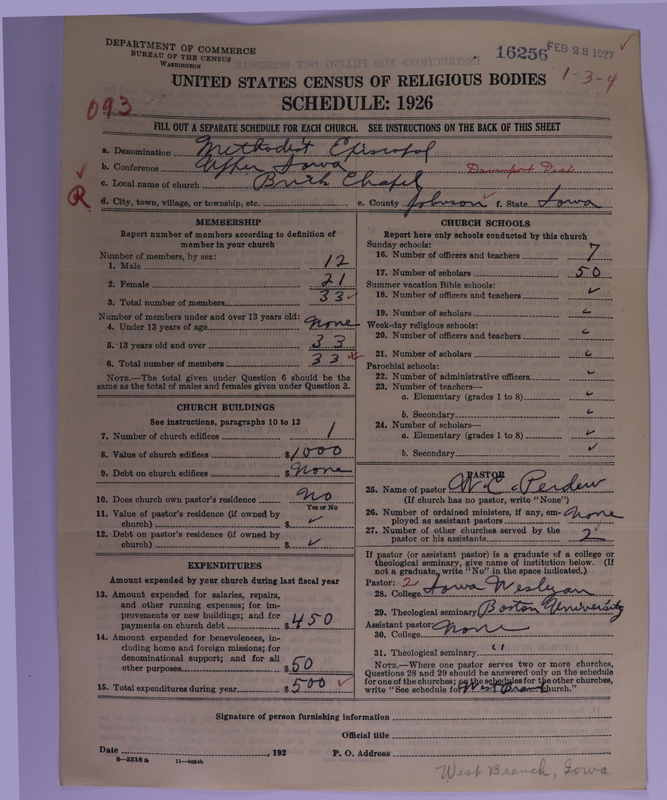 DEPARTMENT OF COMMERCE
BUREAU OF THE CENSUS
WASHINGTON
16256 FEB 28 1927
1-3-4
UNITED STATES CENSUS OF RELIGIOUS BODIES
SCHEDULE: 1926
093
FILL OUT A SEPARATE SCHEDULE FOR EACH CHURCH. SEE INSTRUCTIONS ON THE BACK OF THIS SHEET
a. Denomination Methodist Episcopal
b. Conference Upper Iowa Davenport Dist
c. Local name of church Buth Chapel
R
d. City, town, village, or township, etc. e. County Johnson f. State Iowa
MEMBERSHIP
Report number of members according to definition of
member in your church
Number of members, by sex:
1. Male 12
2. Female 21
3. Total number of members 33
Number of members under and over 13 years old:
4. Under 13 years of age None
5. 13 years old and over 33
6. Total number of members 33
NOTE.—The total given under Question 6 should be
same as the total of males and females given under Question 3.
CHURCH BUILDINGS
See instructions, paragraphs 10 to 12
7. Number of church edifices 1
8. Value of church edifices $1000
9. Debt on church edifices $None
10. Does church own pastor's residence No
Yes or No
11. Value of pastor's residence (if owned by
church) $ ✓
12. Debt on pastor's residence (if owned by
church) $ ✓
EXPENDITURES
Amount expended by your church during last fiscal year
13. Amount expended for salaries, repairs,
and other running expenses; for im-
provements or new buildings; and for
payments on church debt $450
14. Amount expended for benevolences, in-
cluding home and foreign missions; for
denominational support; and for all
other purposes $50
15. Total expenditures during year $500 ✓
CHURCH SCHOOLS
Report here only schools conducted by this church
Sunday schools:
16. Number of officers and teachers 7
17. Number of scholars 50
Summer vacation Bible schools:
18. Number of officers and teachers ✓
19. Number of scholars ✓
Week-day religious schools:
20. Number of officers and teachers ✓
21. Number of scholars ✓
Parochial schools:
22. Number of administrative officers ✓
23. Number of teachers—
a. Elementary (grades 1 to 8) ✓
b. Secondary ✓
24. Number of scholars—
a. Elementary (grades 1 to 8) ✓
b. Secondary ✓
PASTOR
25. Name of pastor W. C. Perdew
(If church has no pastor, write "None")
26. Number of ordained ministers, if any, em-
ployed as assistant pastors None
27. Number of other churches served by the
pastor or his assistants 2
If pastor (or assistant pastor) is a graduate of a college or
theological seminary, give name of institution below. (If
not a graduate, write "No" in the space indicated.)
Pastor: 2
28. College Iowa Wesleyan
29. Theological seminary Boston University
Assistant pastor:
30. College None
31. Theological seminary "
NOTE.—Where one pastor serves two or more churches,
Questions 28 and 29 should be answered only on the schedule
for one of the churches; on the schedules for the other churches,
write "See schedule for West Branch church."
Signature of person furnishing information
Official title
Date , 192 P. O. Address
8—5518 a
West Branch, Iowa